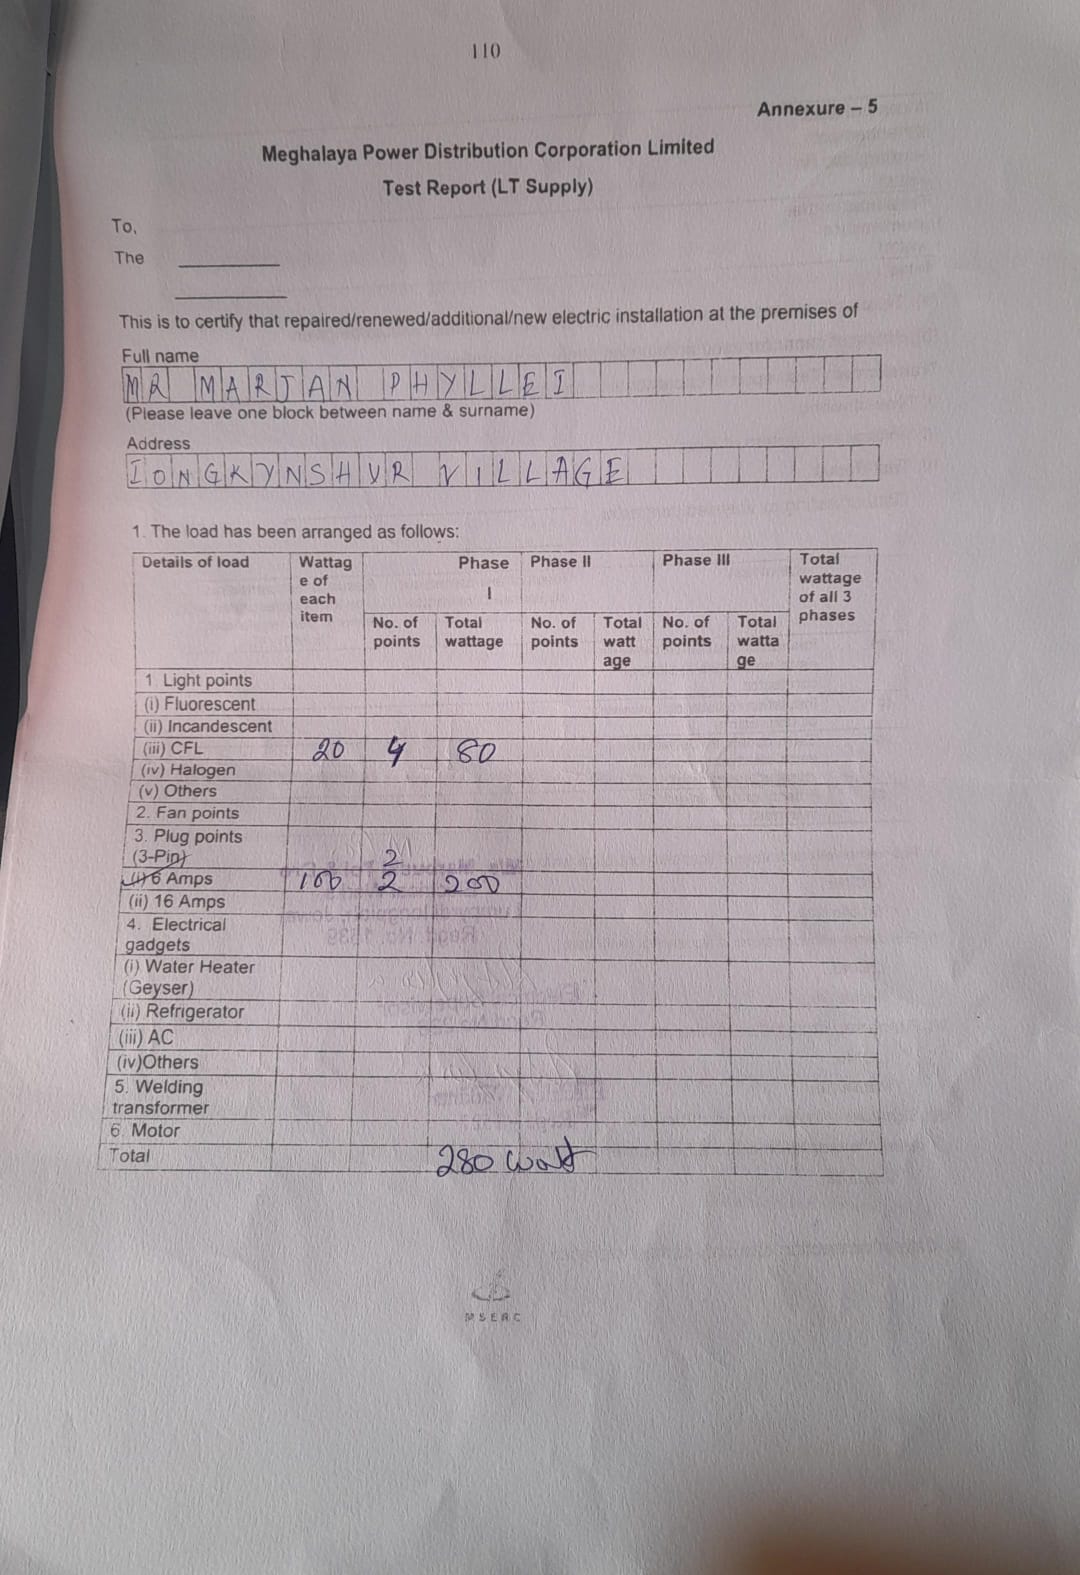 110
Annexure – 5
Meghalaya Power Distribution Corporation Limited
Test Report (LT Supply)
To,
The
This is to certify that repaired/renewed/additional/new electric installation at the premises of
Full name
MR MARJAN PHYLLEI
(Please leave one block between name & surname)
Address
IONGKYNSHUR VILLAGE
1. The load has been arranged as follows:
Details of load Wattag e of each item Phase I Phase II Phase III Total wattage of all 3 phases
No. of points Total wattage No. of points Total watt age No. of points Total watta ge
1 Light points
(i) Fluorescent
(ii) Incandescent
(iii) CFL 20 4 80
(iv) Halogen
(v) Others
2. Fan points
3. Plug points
(3-Pin) 2
(i) 6 Amps 100 2 200
(ii) 16 Amps
4. Electrical
gadgets
(i) Water Heater
(Geyser)
(ii) Refrigerator
(iii) AC
(iv)Others
5. Welding
transformer
6. Motor
Total 280 watt
MSERC